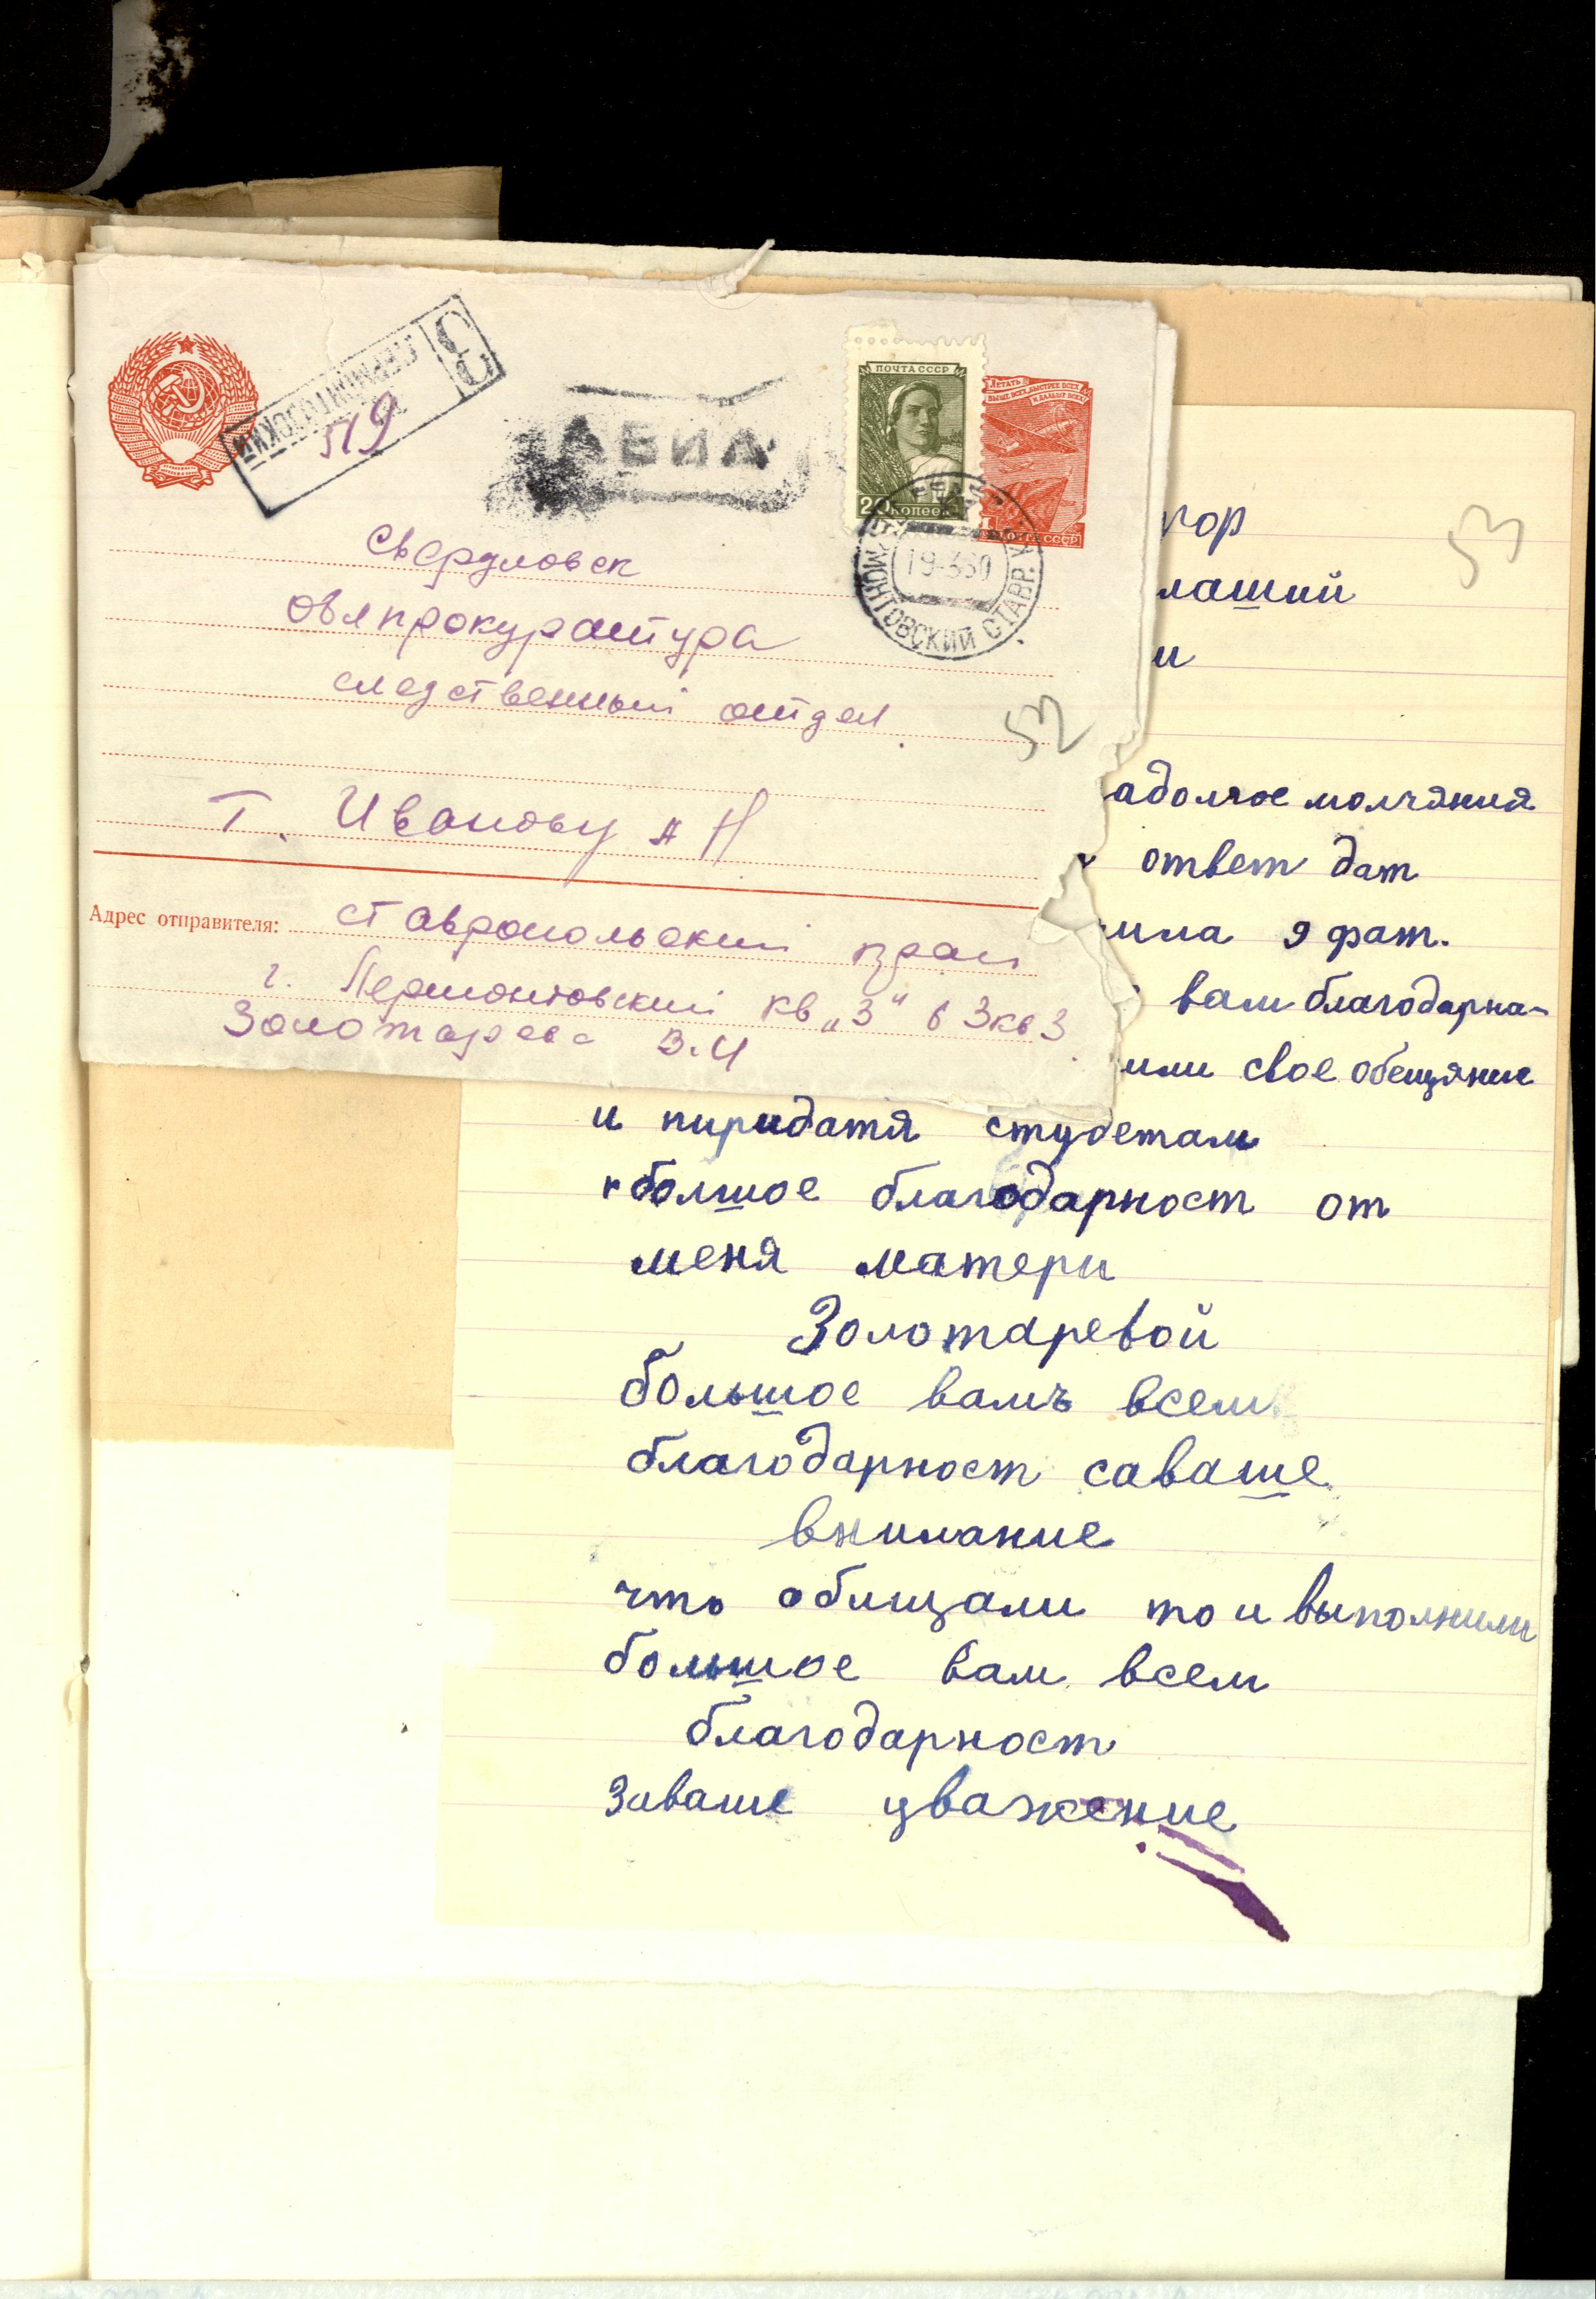 С
ЛЕРМОНТОВСКИЙ
519
АВИА
ПОЧТА СССР
20 КОПЕЕК
ЛЕТАТЬ
ВЫШЕ ВСЕХ, БЫСТРЕЕ ВСЕХ
И ДАЛЬШЕ ВСЕХ!
ПОЧТА СССР
19-3 60
ЛЕРМОНТОВСКИЙ СТАВР. К
Свердловск
Облпрокуратура
следственный отдел
52
Т. Иванову
Адрес отправителя: Ставропольский край
г. Лермонтовский кв „3" д 3 кв 3
Золотарева В.И
53
кор
лаший
и
адолгое молчяния
ответ дат
мила 9 фат.
вам благодарна-
или свое обещяние
и пиридатя студетам
болшое благодарност от
меня матери
Золотаревой
большое вамъ всем
благодарност саваше
внимание
что обищали то и выполнили
большое вам всем
благодарност
заваше уважение